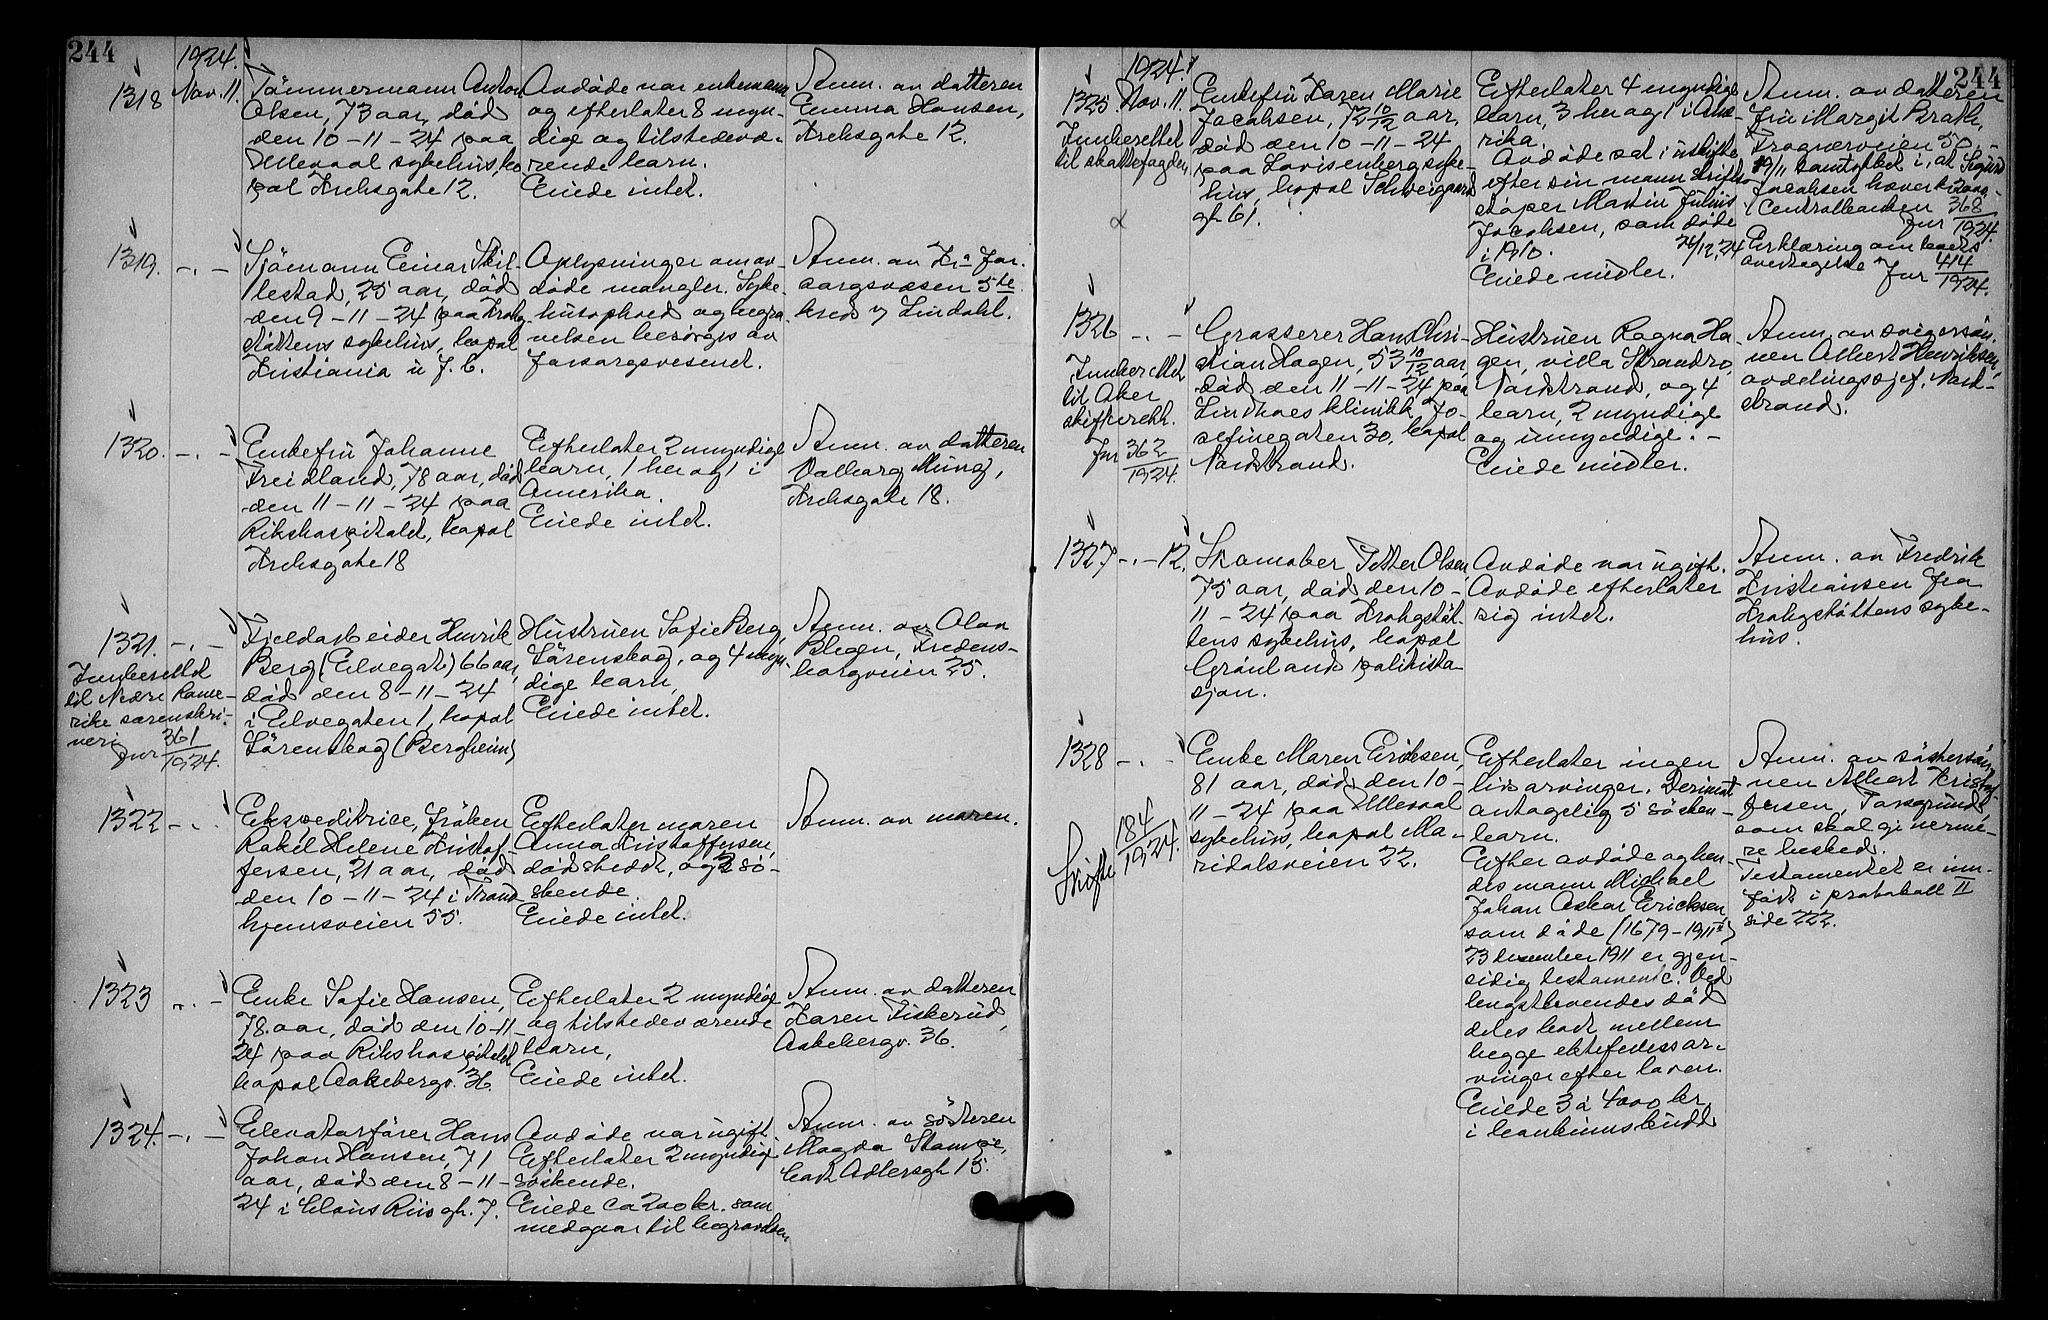 244
1924.
1318 Nov. 11.
Tömmermann Anton
Olsen, 73 aar, död
den 10-11-24 paa
Ullevaal sykehus, bo
pæl Krebsgate 12.
Avdöde var enkemann
og efterlater 8 myn-
dige og tilstedevæ-
rende barn.
Eiede intet.
Anm. av datteren
Emma Hansen,
Krebsgate 12.
1319. -.-
Sjömann Einar Skil-
lestad, 25 aar, död
den 9-11-24 paa Krohg
stöttens sykehus, bopæl
Kristiania u. f. b.
Oplysninger om av-
döde mangler. Syke-
husophold og begra-
velsen besörges av
forsorgsvesenet.
Anm. av Kra For-
sorgsvæsen 5te
kreds v/ Lindahl.
1320. -.-
Enkefru Johanne
Freidland, 78 aar, död
den 11-11-24 paa
Rikshospitalet, bopæl
Krebsgate 18
Efterlater 2 myndige
barn, 1 her og 1 i
Amerika.
Eiede intet.
Anm. av datteren
Valborg Mung,
Krebsgate 18.
1321. -.-
Innberettet
til Nedre Rome-
rike sorenskri-
veri
Jnr 361/1924.
Fjeldarbeider Henrik
Berg (Elvegata) 66 aar,
död den 8-11-24
i Elvegaten 1, bopæl
Lörenskog (Bergheim)
Hustruen Sofie Berg,
Lörenskog, og 4 myn-
dige barn,
Eiede intet.
Anm. av Olav
Blegen, Fredens-
borgveien 25.
1322 -.-
Ekspeditrice, fröken
Rakel Helene Kristof-
fersen, 21 aar, död
den 10-11-24 i Trond
hjemsveien 55.
Efterlater moren
Anna Kristoffersen,
dödsstedet, og 2 sö-
skende.
Eiede intet.
Anm. av moren.
1323 -.-
Enke Sofie Hansen,
78 aar, död den 10-11-
24 paa Rikshospitalet
bopæl Aakebergv. 36.
Efterlater 2 myndige
og tilstedeværende
barn,
Eiede intet.
Anm. av datteren
Karen Fiskerud,
Aakebergv. 36.
1324. -.-
Elevatorförer Hans
Johan Hansen, 71
aar, död den 8-11-
24 i Claus Riis gt. 7.
Avdöde var ugift
Efterlater 2 myndige
söskende.
Eiede ca 200 kr. som
medgaar til begravelsen
Anm. av sösteren
Magda Stampe,
Cort Adlersgt 15.
244
1924.
1325. Nov. 11.
Innberettet
til skattefogden
Enkefru Karen Marie
Jacobsen, 72 10/12 aar,
död den 10-11-24
paa Lovisenberg syke-
hus, bopæl Schweigaard
gt 61.
Efterlater 4 myndige
barn, 3 her og 1 i Ame-
rika.
Avdöde sat i uskifte
efter sin mann skrift-
stöper Martin Julius
Jacobsen, som döde
i 1910.
Eiede midler.
Anm. av datteren
Fru Margit Brath,
Frognerveien 50,-
19/11 samtykket i, at Sigurd
Jacobsen hæver kr 2000,-
i Centralbanken 368/1924.
Jnr
24/12.24 Erklæring om boets
overtagelse Jnr 414/1924.
1326 -.-
Innberettet
til Aker
skifterett.
Jnr 362/1924.
Grosserer Hans Chri-
stian Hagen, 53 10/12 aar,
död den 11-11-24 paa
Lindboes klinikk Jo-
sefinegaten 30, bopæl
Nordstrand.
Hustruen Ragna Ha-
gen, villa Strandro,
Nordstrand, og 4
barn, 2 myndige
og umyndige.-
Eiede midler.
Anm. av svigersön-
nen Albert Henriksen,
avdelingssjef, Nord-
strand.
1327 -.- 12.
Skomaker Petter Olsen,
75 aar, död den 10-
11-24 paa Krohgstöt-
tens sykehus, bopæl
Grönland politista-
sjon.
Avdöde var ugift.
Avdöde efterlater
sig intet.
Anm. av Fredrik
Kristiansen fra
Krohgstöttens syke-
hus.
1328 -.-
Skifte 184/1924.
Enke Maren Ericksen,
81 aar, död den 10-
11-24 paa Ullevaal
sykehus, bopæl Ma-
ridalsveien 22.
Efterlater ingen
livsarvinger. Derimot
antagelig 5 sösken-
barn.
Efter avdöde og hen-
des mann Michael
Johan Oskar Ericksen,
som döde (1679-1911)
23 desember 1911 er gjen-
sidig testamente. Ved
lengstlevendes död
deles boet mellem
begge ektefellers ar-
vinger efter loven.
Eiede 3 à 4000 kr
i bankinnskudd
Anm. av söstersön-
nen Albert Kristof-
fersen, Torsgrund,
som skal gi nerme-
re besked.
Testamentet er inn-
fört i protokoll II
side 222.